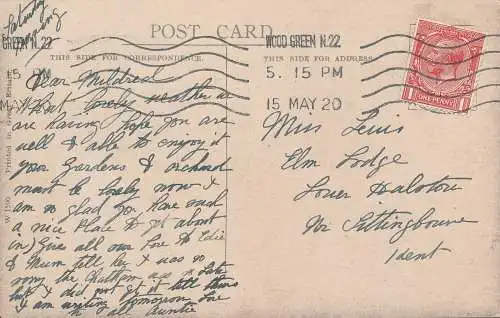 Saturday
morning
POST CARD
GREEN N.22
WOOD GREEN N.22
THIS SIDE FOR CORRESPONDENCE.
THIS SIDE FOR ADDRESS.
15 PM
5. 15 PM
MAY 20
15 MAY 20
ONE PENNY
Dear Mildred
What lovely weather we
are having hope you are
well & able to enjoy it
your Gardens & orchard
must be lovely now I
am so glad you have such
a nice Place to get about
in) Give all our love to Edie
& Mum tell her I was so
sorry the Chatham was so late
but I did not get it till
I am writing Tomorrow love
to all Auntie
Miss Lewis
Elm Lodge
Lower Halstow
Nr Sittingbourne
Kent
Printed in Great Britain